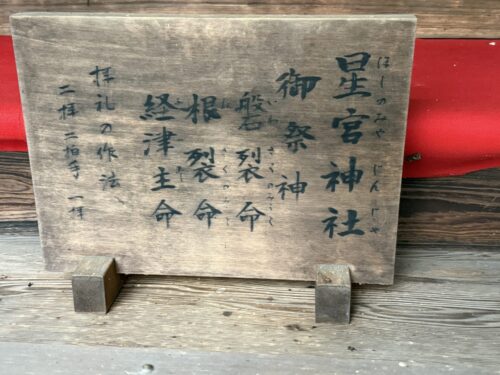 星宮神社
ほしのみや じんじゃ
御祭神
磐裂命
いわさくのみこと
根裂命
ねさくのみこと
経津主命
拝礼の作法
二拝 二拍手 一拝